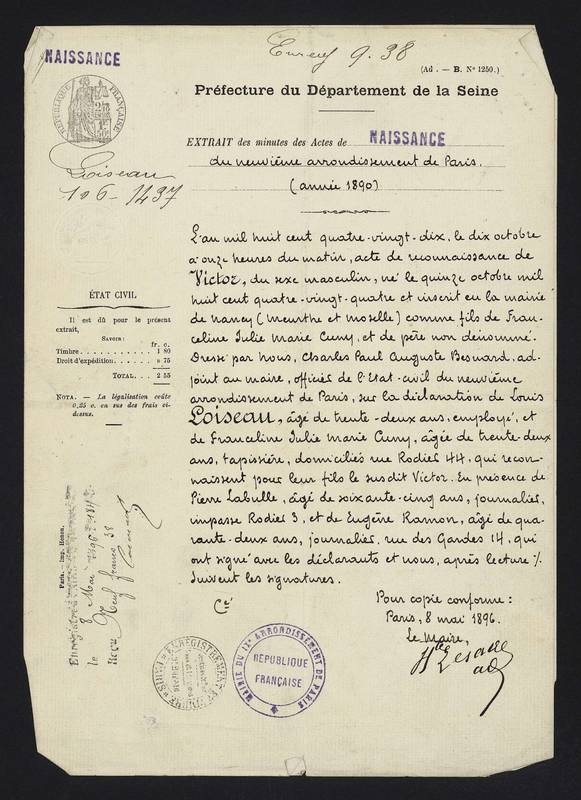 NAISSANCE
9. 38
(Ad. — B. Nº 1250.)
Préfecture du Département de la Seine
RÉPUBLIQUE FRANÇAISE
EXTRAIT des minutes des Actes de NAISSANCE
du neuvième arrondissement de Paris.
(année 1890)
Loiseau
106-1437
L'an mil huit cent quatre-vingt-dix, le dix octobre
à onze heures du matin, acte de reconnaissance de
Victor, du sexe masculin, né le quinze octobre mil
huit cent quatre-vingt-quatre et inscrit en la mairie
de Nancy (Meurthe et Moselle) comme fils de Fran-
celine Julie Marie Cuny, et de père non dénommé.
Dressé par nous, Charles Paul Auguste Besnard, ad-
joint au maire, officier de l'Etat-civil du neuvième
arrondissement de Paris, sur la déclaration de Louis
Loiseau, âgé de trente-deux ans, employé, et
de Franceline Julie Marie Cuny, âgée de trente-deux
ans, tapissière, domiciliés rue Rodier 44, qui recon-
naissent pour leur fils le susdit Victor. En présence de
Pierre Labulle, âgé de soixante-cinq ans, journalier,
impasse Rodier 3, et de Eugène Ramon, âgé de qua-
rante-deux ans, journalier, rue des Gardes 14, qui
ont signé avec les déclarants et nous, après lecture ./.
Suivent les signatures.
Cé
Pour copie conforme :
Paris, 8 mai 1896.
Le Maire,
ÉTAT CIVIL
Il est dû pour le présent
extrait,
SAVOIR :
fr. c.
Timbre . . . . . . . . . . . 1 80
Droit d'expédition. . . . . » 75
TOTAL. . . 2 55
NOTA. — La légalisation coûte
0,25 c. en sus des frais ci-
dessus.
Paris. — Imp.
Enregistré
le 8 Mai 1896
Reçu Neuf francs 38
ENREGISTREMENT
PARIS
MAIRIE DU IXe ARRONDISSEMENT DE PARIS
REPUBLIQUE
FRANÇAISE